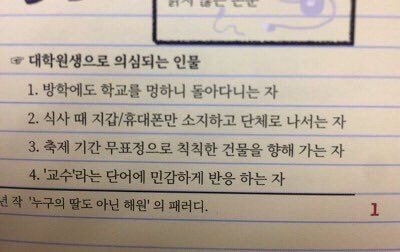 ☞ 대학원생으로 의심되는 인물
1. 방학에도 학교를 멍하니 돌아다니는 자
2. 식사 때 지갑/휴대폰만 소지하고 단체로 나서는 자
3. 축제 기간 무표정으로 칙칙한 건물을 향해 가는 자
4. '교수'라는 단어에 민감하게 반응 하는 자
작 '누구의 딸도 아닌 해원' 의 패러디.
1